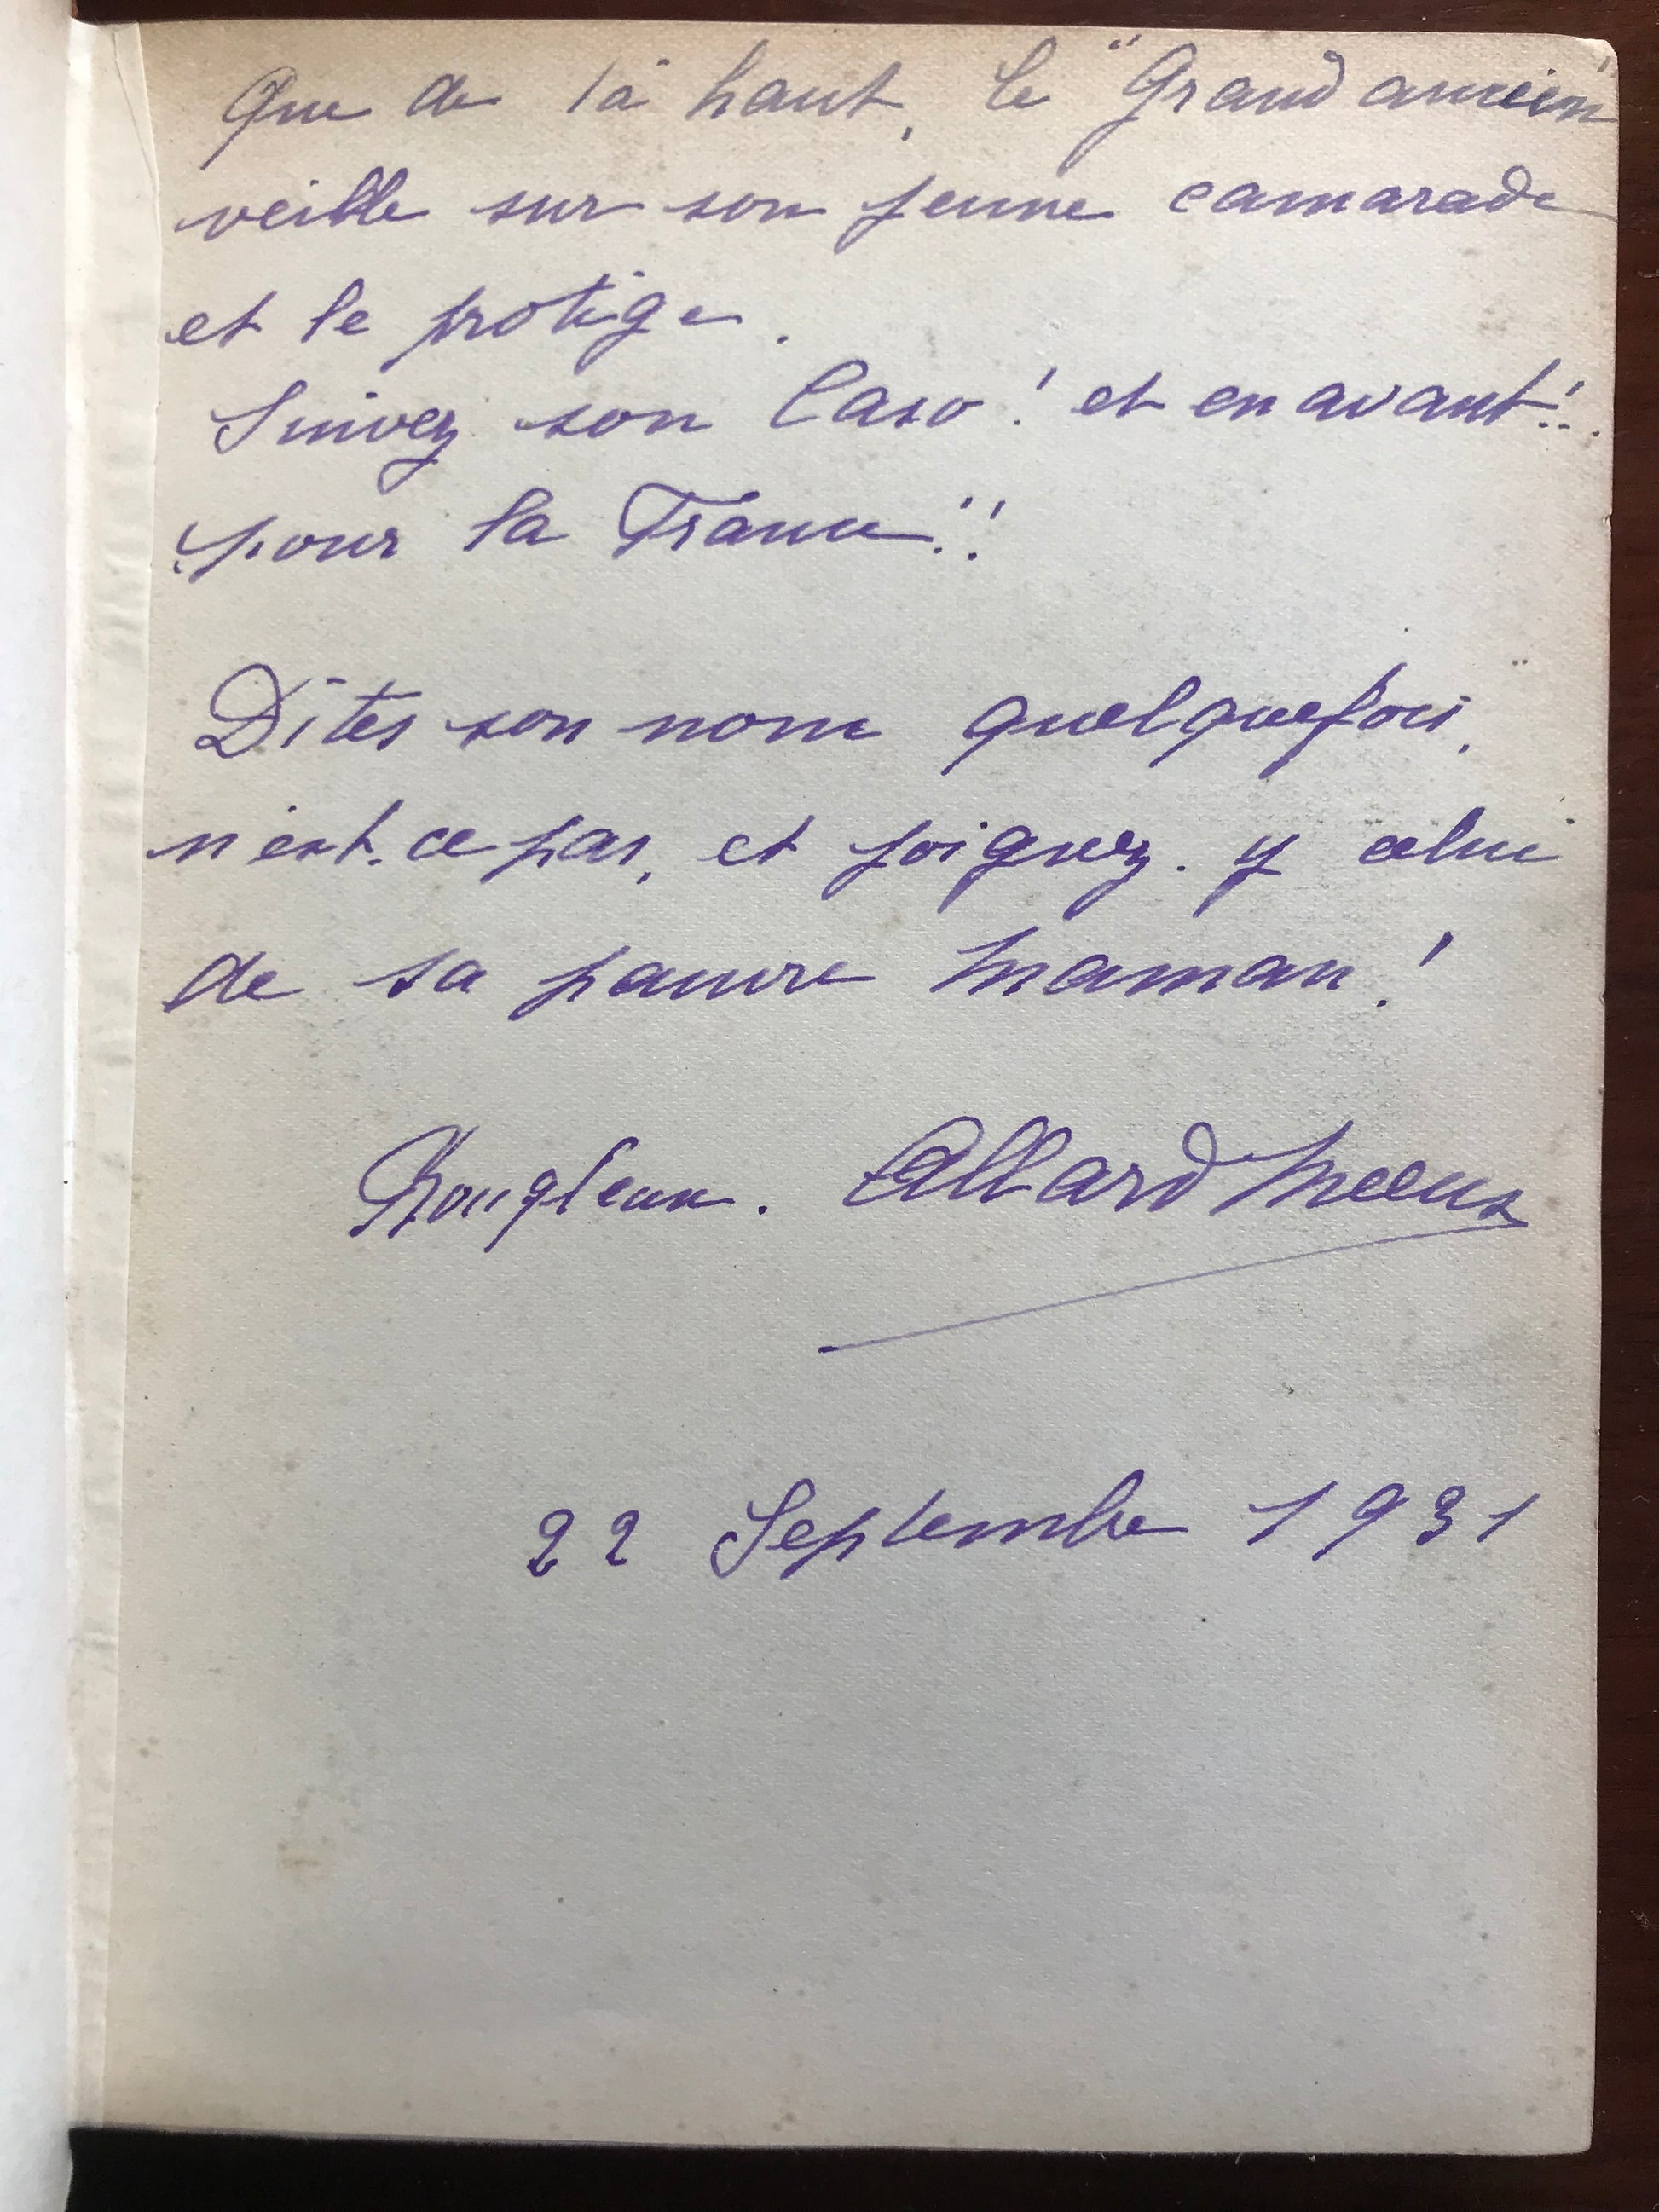 Que de là haut, le "Grand ancien"
veille sur son jeune camarade
et le protège.
Suivez son Caso! et en avant!!.
pour la France!!
Dites son nom quelquefois,
n'est-ce pas, et joignez-y celui
de sa pauvre Maman!
Allard Meeus
22 Septembre 1931